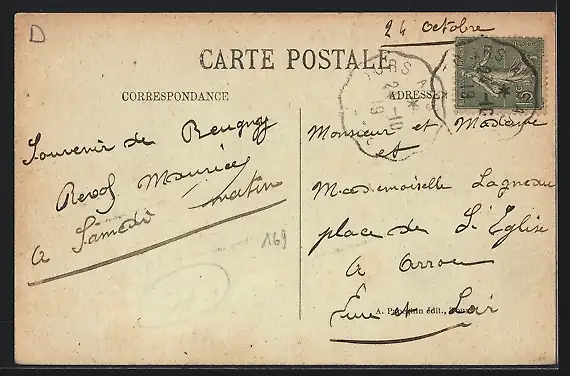 D
24 octobre
CARTE POSTALE
CORRESPONDANCE
ADRESSE
Souvenir de Reugny
Maurice
a Samedi matin
169
Monsieur et Madame
et
Mademoiselle Lagneau
place de L'Eglise
a Arrou
Eure et Loir
édit., Tours
TOURS A
15